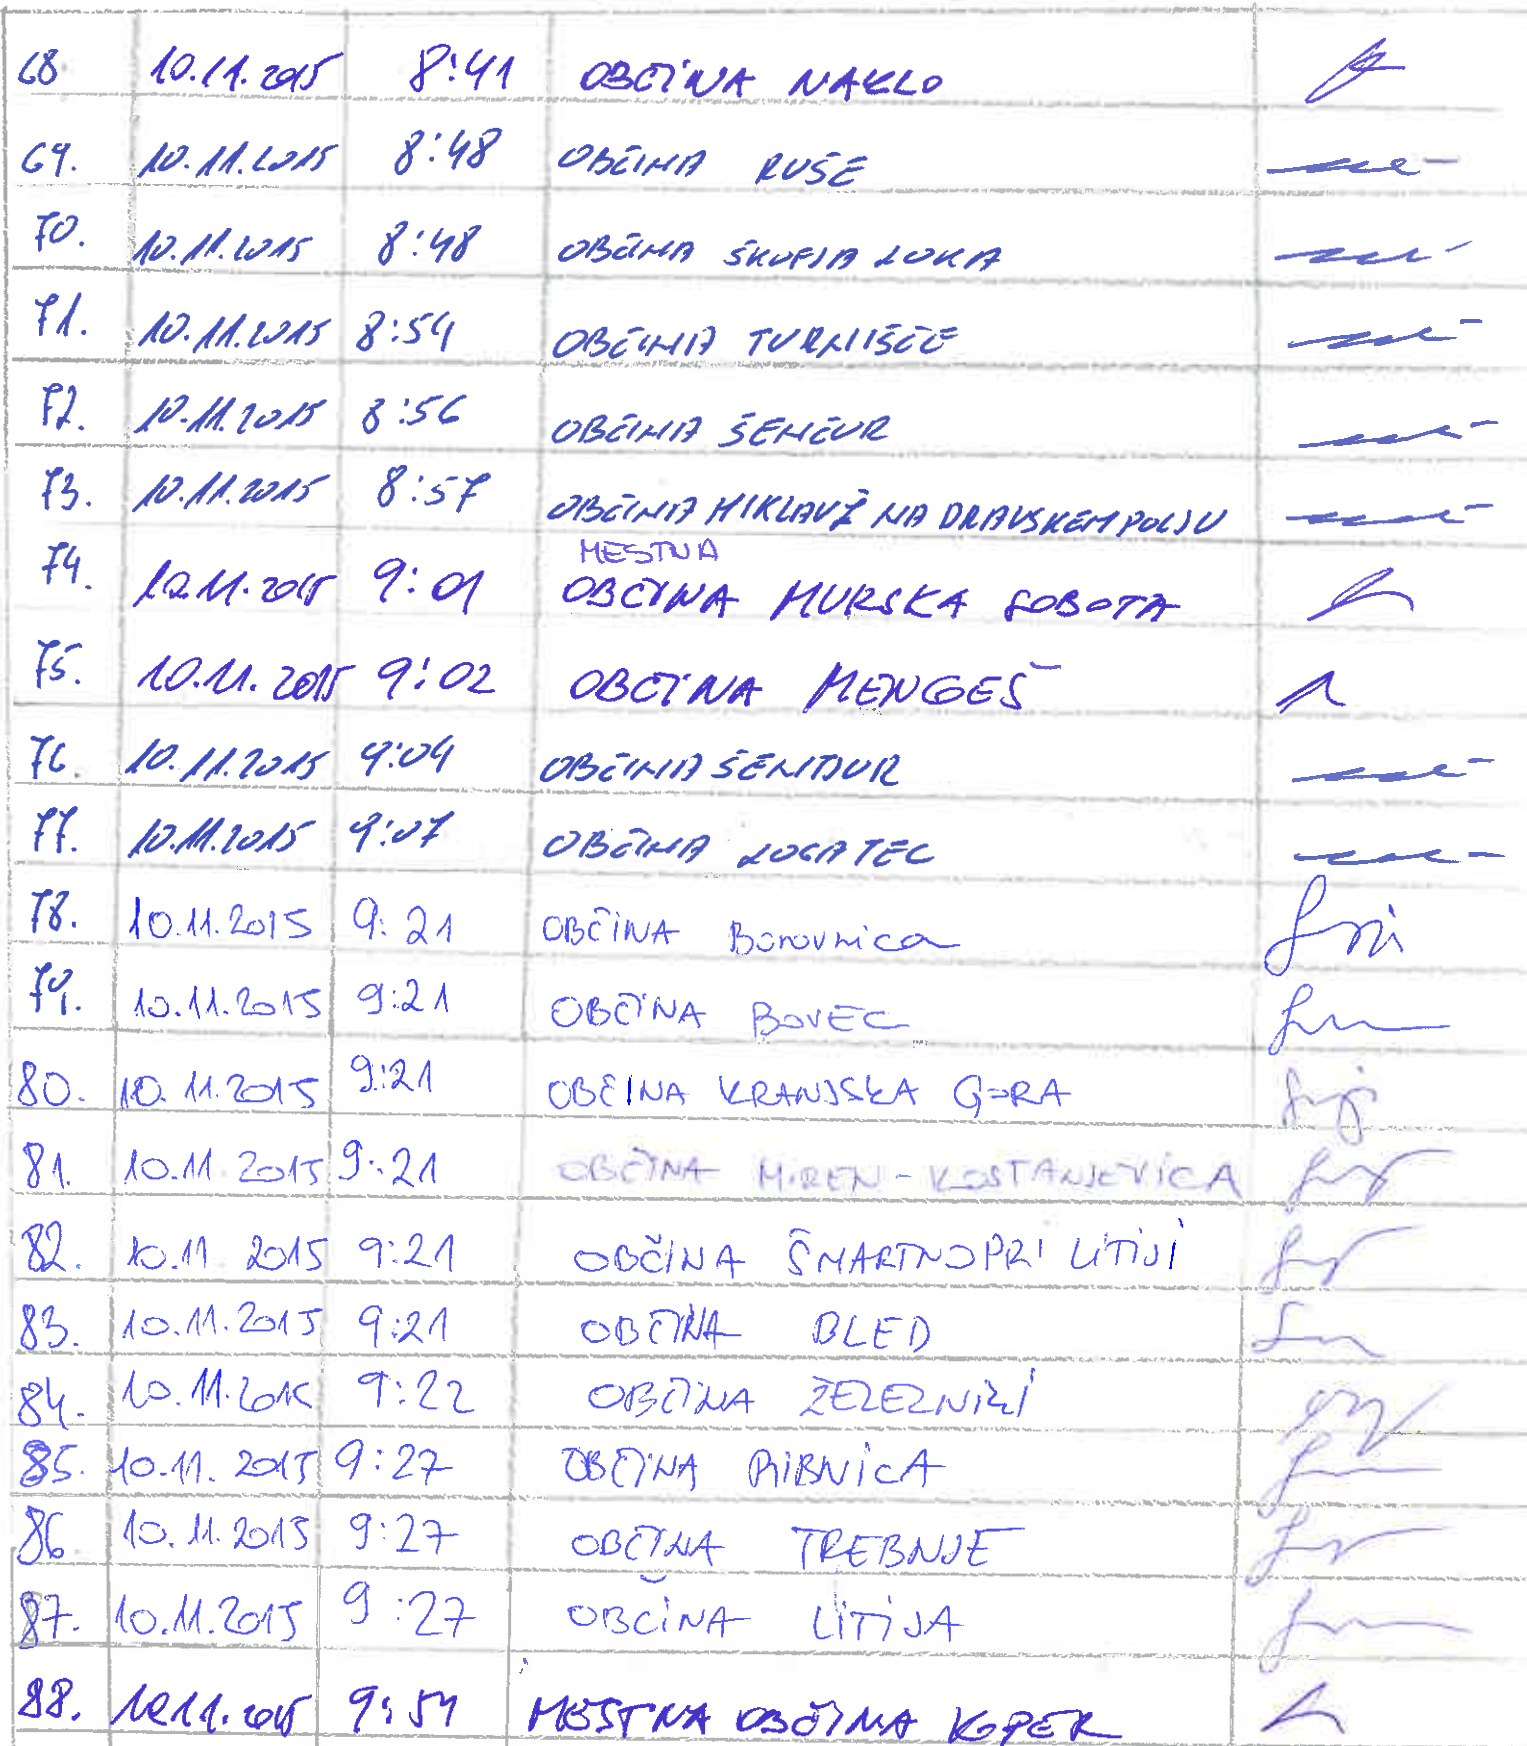 68 10.11.2015 8:41 OBČINA NAKLO
69. 10.11.2015 8:48 OBČINA RUŠE
70. 10.11.2015 8:48 OBČINA ŠKOFJA LOKA
71. 10.11.2015 8:54 OBČINA TURNIŠČE
72. 10.11.2015 8:56 OBČINA ŠENČUR
73. 10.11.2015 8:57 OBČINA MIKLAVŽ NA DRAVSKEM POLJU
MESTNA
74. 10.11.2015 9:01 OBČINA MURSKA SOBOTA
75. 10.11.2015 9:02 OBČINA MENGEŠ
76. 10.11.2015 9:04 OBČINA ŠENTJUR
77. 10.11.2015 9:07 OBČINA LOGATEC
78. 10.11.2015 9:21 OBČINA Borovnica
79. 10.11.2015 9:21 OBČINA BOVEC
80. 10.11.2015 9:21 OBČINA KRANJSKA GORA
81. 10.11.2015 9:21 OBČINA MIREN-KOSTANJEVICA
82. 10.11 2015 9:21 OBČINA ŠMARTNO PRI LITIJI
83. 10.11.2015 9:21 OBČINA BLED
84. 10.11.2015 9:22 OBČINA ŽELEZNIKI
85. 10.11.2015 9:27 OBČINA RIBNICA
86. 10.11.2015 9:27 OBČINA TREBNJE
87. 10.11.2015 9:27 OBČINA LITIJA
88. 10.11.2015 9:54 MESTNA OBČINA KOPER